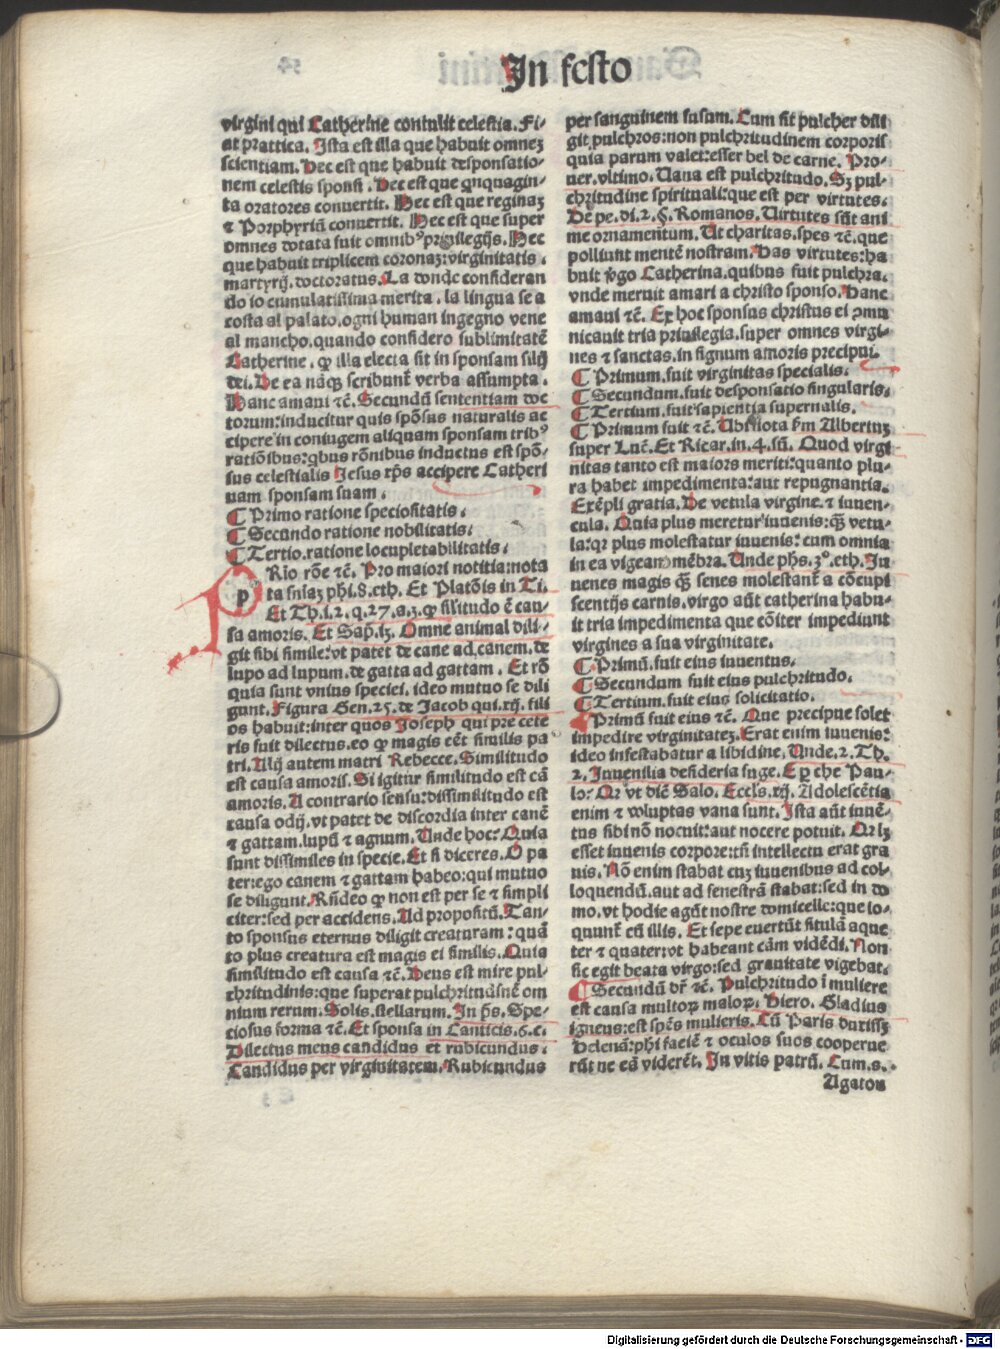 In festo
virgini qui Catherine contulit celestia. Fi-
at prattica. Ista est illa que habuit omneʒ
scientiam. Hec est que habuit desponsatio-
nem celestis sponsi. Hec est que qnquagin-
ta oratores conuertit. Hec est que reginaʒ
⁊ Porphyriū conuertit. Hec est que super
omnes dotata fuit omnibꝰ priuilegijs. Hec
que habuit triplicem coronaʒ: virginitatis.
martyrij. doctoratus. La donde consideran
do io cumulatissima merita. la lingua se a
costa al palato. ogni human ingegno vene
al mancho. quando considero sublimitatē
Catherine. qꝫ illa electa sit in sponsam filij
dei. De ea nāqꝫ scribunt̄ verba assumpta.
Hanc amaui ⁊c̄. Secundū sententiam doc
torum: inducitur quis spōsus naturalis ac
cipere in coniugem aliquam sponsam tribꝰ
ratiōibus: qbus rōnibus inductus est spō-
sus celestialis Jesus xp̄s accipere Catheri
nam sponsam suam.
¶ Primo ratione speciositatis.
¶ Secundo ratione nobilitatis.
¶ Tertio. ratione locupletabilitatis.
PRio rōe ⁊c̄. Pro maiori notitia: nota
ta sn̄iaʒ phi. 8. eth. Et Platōis in Ti.
Et Th. i. 2. q. 27. a. 3. qꝫ sil̄itudo ē cau-
sa amoris. Et Sap̄. 13. Omne animal dili-
git sibi simile: vt patet de cane ad canem. de
lupo ad lupum. de gatta ad gattam. Et rō
quia sunt vnius speciei. ideo mutuo se dili
gunt. Figura Gen. 25. de Jacob qui. xij. fili
os habuit: inter quos Joseph qui pre cete
ris fuit dilectus. eo qꝫ magis eēt similis pa
tri. Alij autem matri Rebecce. Similitudo
est causa amoris. Si igitur similitudo est cā
amoris. A contrario sensu: dissimilitudo est
causa odij. vt patet de discordia inter canē
⁊ gattam. lupū ⁊ agnum. Unde hoc: Quia
sunt dissimiles in specie. Et si diceres. O pa
ter: ego canem ⁊ gattam habeo: qui mutuo
se diligunt. Rn̄deo qꝫ non est per se ⁊ simpli
citer: sed per accidens. Ad propositū. Tan-
to sponsus eternus diligit creaturam: quā
to plus creatura est magis ei similis. Quia
similitudo est causa ⁊c̄. Deus est mire pul-
chritudinis: que superat pulchritudinē om
nium rerum. Solis. stellarum. In p̄s. Spe-
ciosus forma ⁊c̄. Et sponsa in Canticis. 6. c.
Dilectus meus candidus et rubicundus.
Candidus per virginitatem. Rubicundus
per sanguinem fusum. Cum sit pulcher dili
git pulchros: non pulchritudinem corporis
quia parum valet: esser bel de carne. Pro-
uer. vltimo. Uana est pulchritudo. Sʒ pul-
chritudine spirituali: que est per virtutes.
De pe. di. 2. §. Romanos. Uirtutes sūt ani
me ornamentum. Ut charitas. spes ⁊c̄. que
polliunt mentē nostram. Has virtutes: ha
buit v̄go Catherina. quibus fuit pulchra.
vnde meruit amari a christo sponso. Hanc
amaui ⁊c̄. Ex hoc sponsus christus ei ꝯmu
nicauit tria priuilegia. super omnes virgi-
nes ⁊ sanctas. in signum amoris precipui.
¶ Primum. fuit virginitas specialis.
¶ Secundum. fuit desponsatio singularis.
¶ Tertium. fuit sapientia supernalis.
¶ Primum fuit ⁊c̄. Ubi nota s̄m Albertuʒ
super Luc̄. Et Ricar. in. 4. sn̄. Quod virgi
nitas tanto est maioris meriti: quanto plu-
ra habet impedimenta: aut repugnantia.
Exēpli gratia. De vetula virgine. ⁊ iuuen-
cula. Quia plus meretur iuuenis: qꝫ̄ vetu-
la: qꝛ plus molestatur iuuenis: cum omnia
in ea vigeant mēbra. Unde ph̄s. 3°. eth. Iu
uenes magis qꝫ̄ senes molestant̄ a cōcupi
scentijs carnis. virgo aūt catherina habu-
it tria impedimenta que cōiter impediunt
virgines a sua virginitate.
¶ Primū. fuit eius iuuentus.
¶ Secundum fuit eius pulchritudo.
¶ Tertium. fuit eius solicitatio.
¶ Primū fuit eius ⁊c̄. Que precipue solet
impedire virginitateʒ. Erat enim iuuenis:
ideo infestabatur a libidine. Unde. 2. Th.
2. Iuuenilia desideria fuge. E per che Pau-
lo: Qꝛ vt dic̄ Salo. Eccls. xij. Adolescētia
enim ⁊ voluptas vana sunt. Ista aūt iuuē-
tus sibi nō nocuit: aut nocere potuit. Qꝛ lʒ
esset iuuenis corpore: tn̄ intellectu erat gra
uis. Nō enim stabat cuʒ iuuenibus ad col-
loquendū. aut ad fenestrā stabat: sed in do
mo. vt hodie agūt nostre domicelle: que lo-
quunt̄ cū illis. Et sepe euertūt situlā aque
ter ⁊ quater: vt habeant cām vidēdi. Non
sic egit beata virgo: sed grauitate vigebat.
¶ Secundū dr̄ ⁊c̄. Pulchritudo i muliere
est causa multoꝝ maloꝝ. Hiero. Gladius
igneus: est spēs mulieris. Cū Paris durissʒ
Helenā: phi faciē ⁊ oculos suos cooperue
rūt ne eā viderēt. In vitis patrū. Cum. s.
Agaton